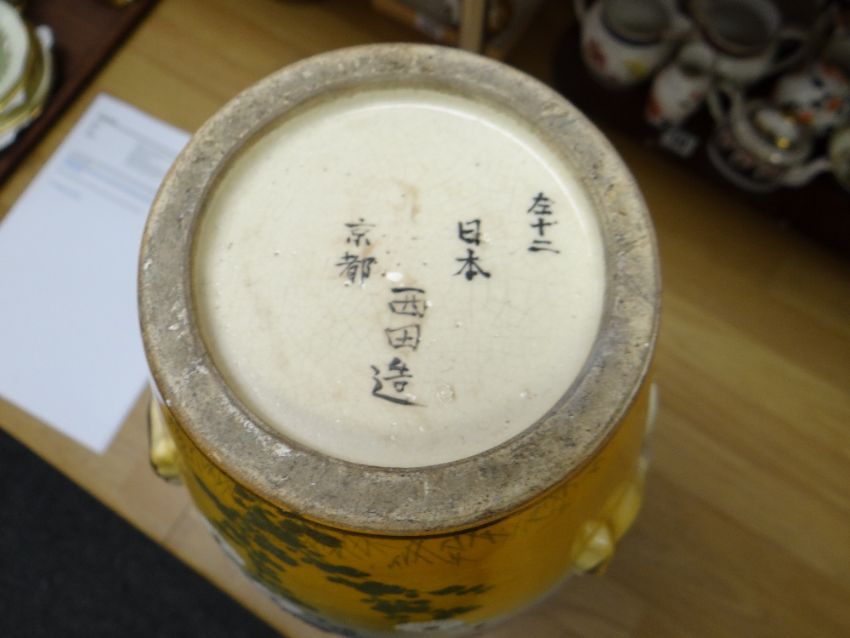 左十二
日本
京都
西田造